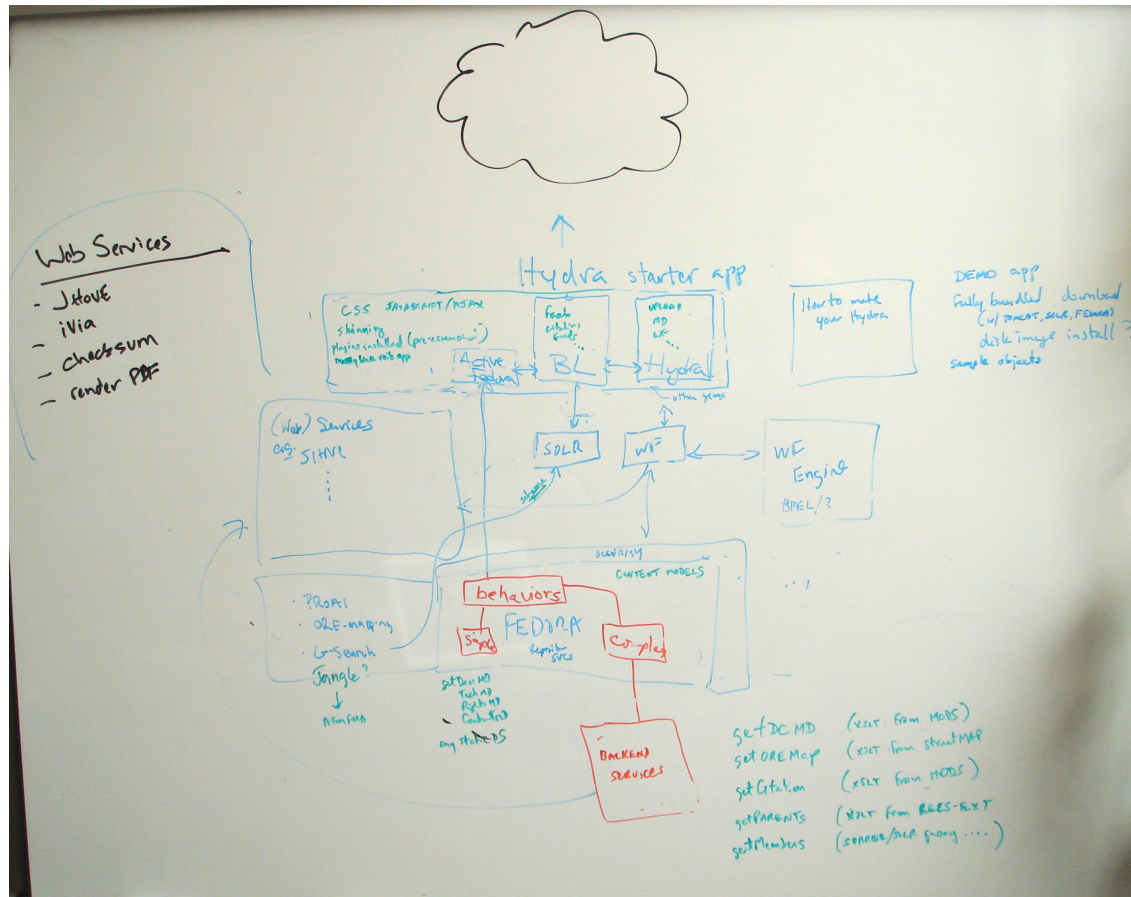 Web Services
- JHOVE
- iVia
- checksum
- render PDF
Hydra starter app
CSS JAVASCRIPT/AJAX
skinning
plugins installed
web app
Active
Fedora
Feeds
BL
UPLOAD
MD
WF
...
Hydra
other gems
How to make
your Hydra
DEMO app
Fully bundled download
(w/ TOMCAT, SOLR, FEDORA)
disk image install ?
sample objects
(Web) Services
eg. JHOVE
SOLR
WF
WF
Engine
BPEL/?
SECURITY
CONTENT MODELS
...
behaviors
Simple
FEDORA
Complex
. PROAI
. ORE-mapping
. G-Search
Jangle?
TechMD
RightsMD
BACKEND
SERVICES
getDCMD (XSLT from MODS)
getOREMap (XSLT from structMAP
getCitation (XSLT from MODS)
getPARENTS (XSLT from RELS-EXT
getMembers query ....)